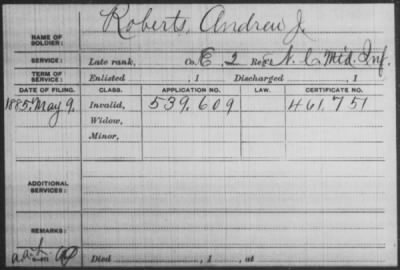 NAME OF SOLDIER: Roberts, Andrew J.
SERVICE: Late rank, Co. E, 2 Reg't N.C. Mtd. Inf.
TERM OF SERVICE: Enlisted , 1 Discharged , 1
DATE OF FILING. CLASS. APPLICATION NO. LAW. CERTIFICATE NO.
1885, May 9. Invalid, 539.609 461.751
Widow,
Minor,
ADDITIONAL SERVICES:
REMARKS:
Died , 1 , at